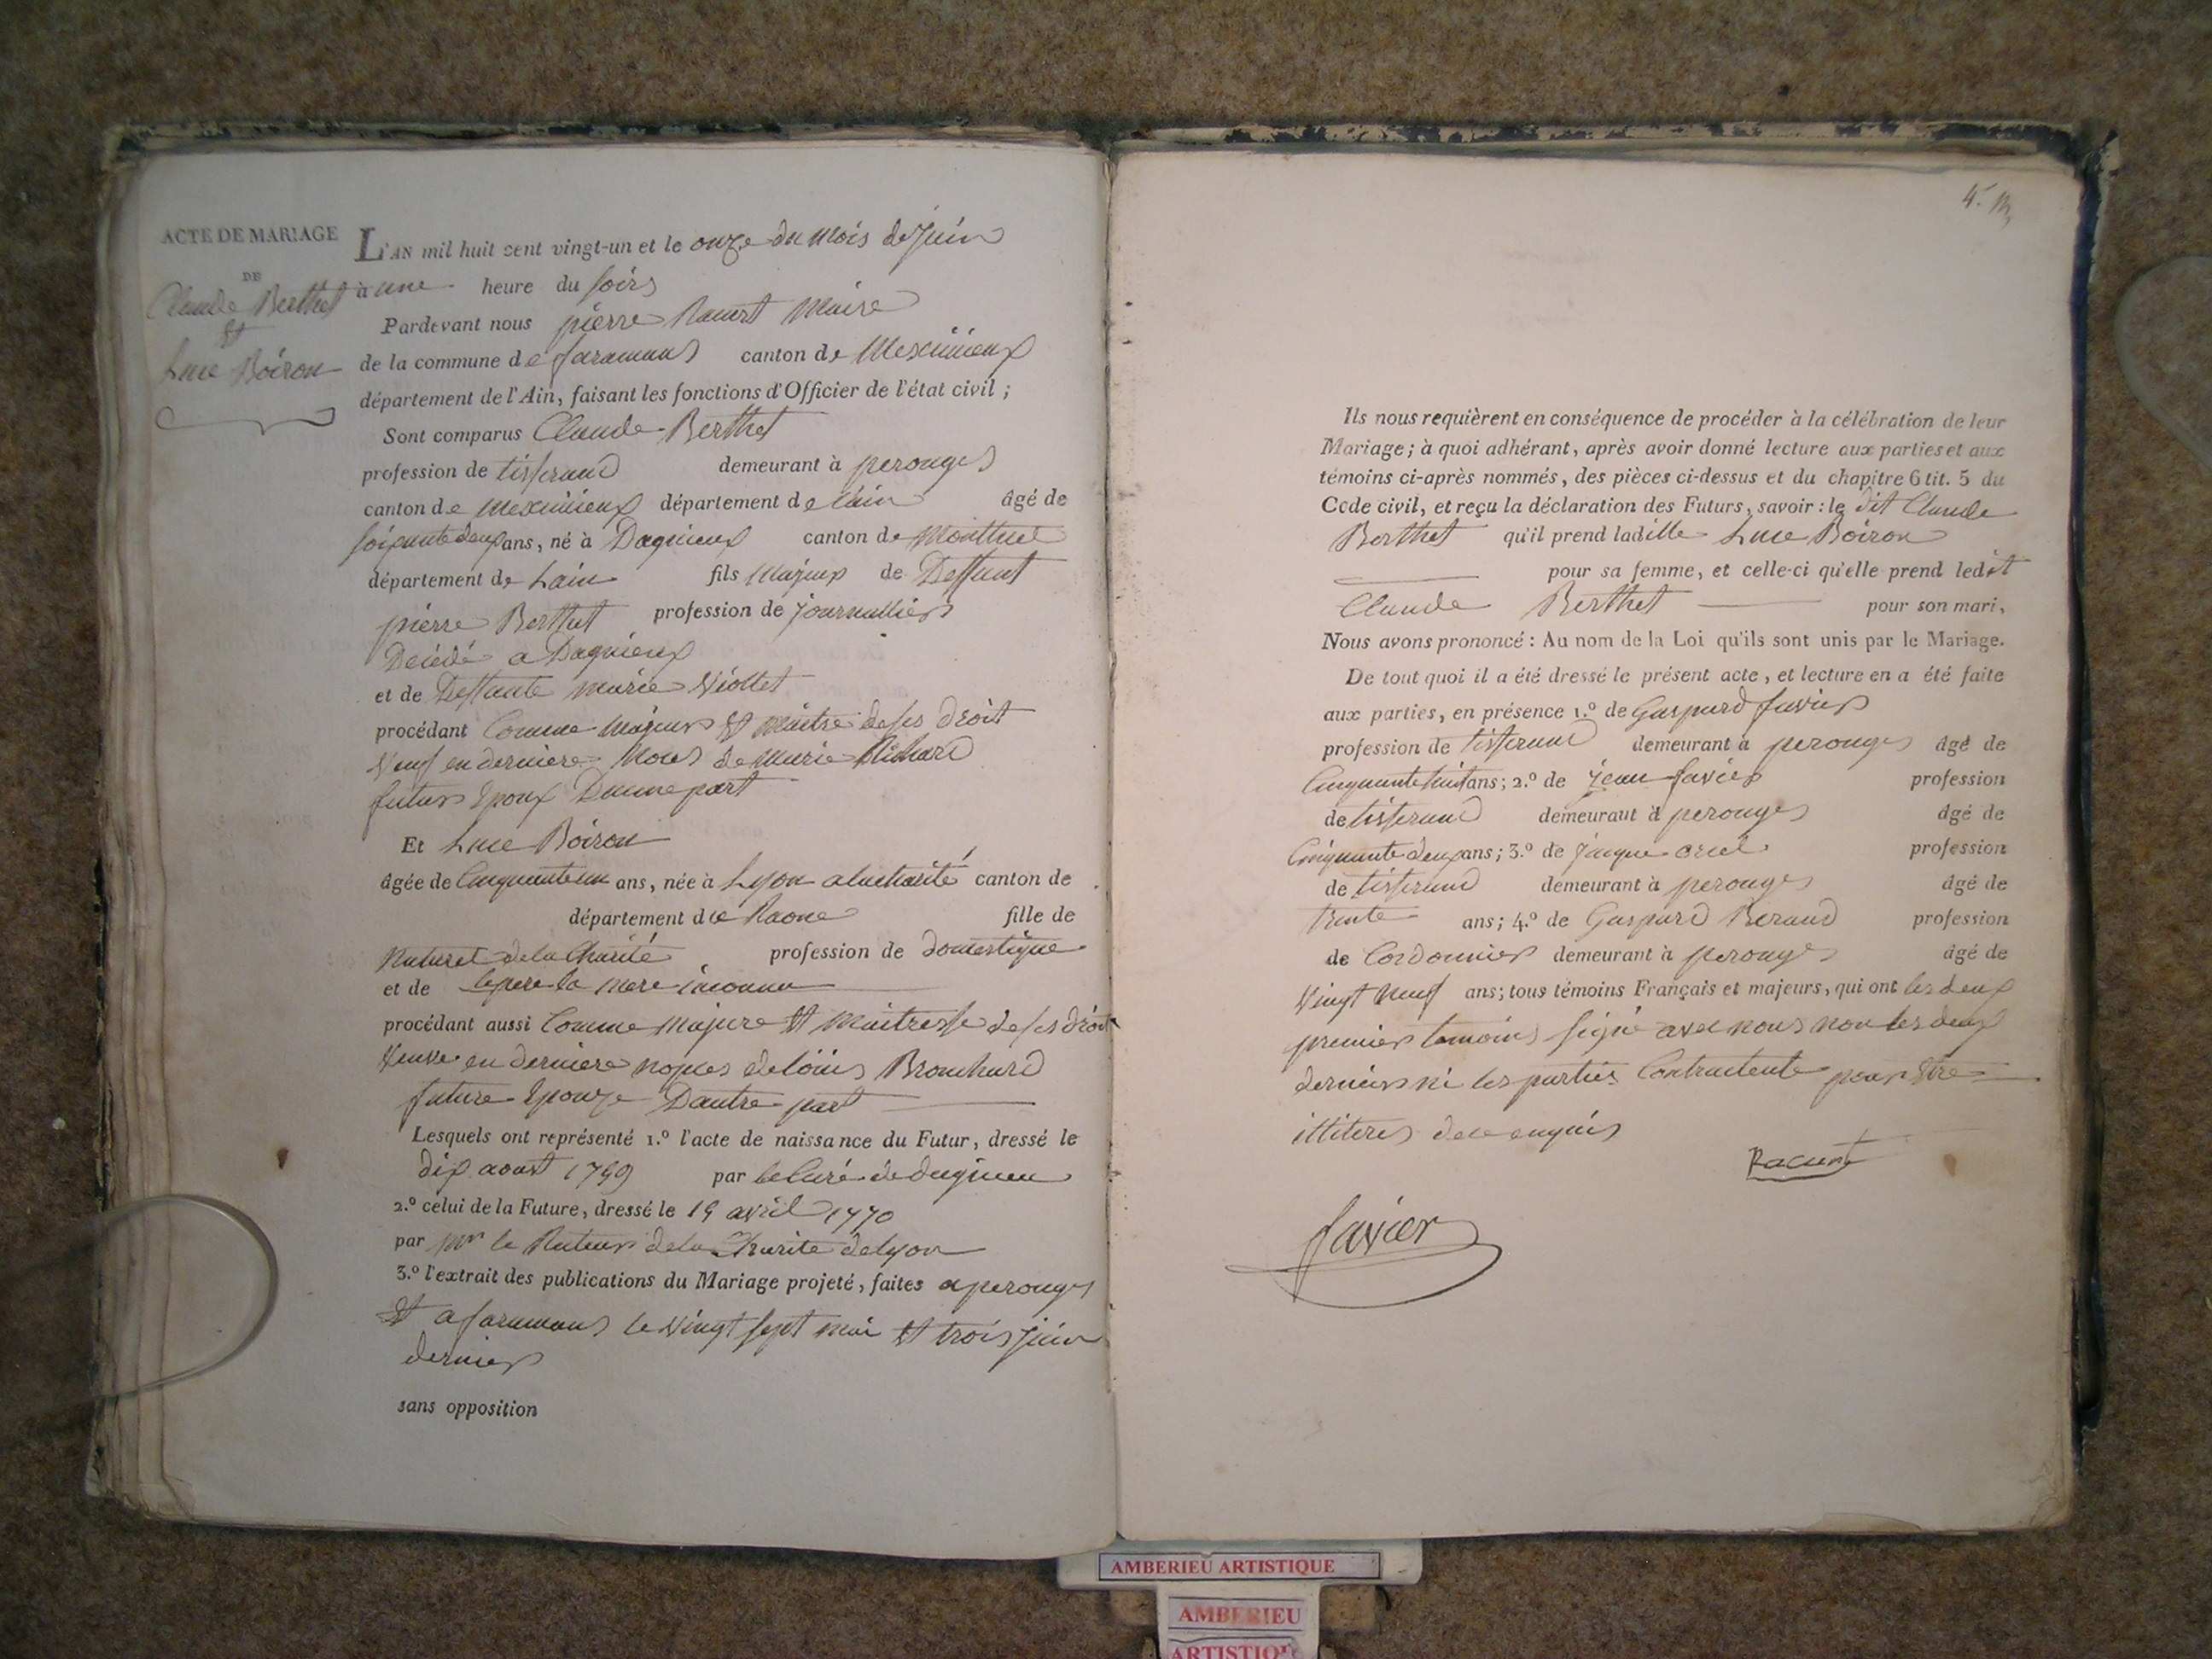 ACTE DE MARIAGE
DE
Claude Berthet
et
Luce Boiron
L'AN mil huit cent vingt-un et le onze du mois de juin
à une heure du soirs
Pardevant nous pierre Racurt Maire
de la commune de faramans canton de Meximieux
département de l'Ain, faisant les fonctions d'Officier de l'état civil ;
Sont comparus Claude Berthet
profession de tisserand demeurant à perouges
canton de meximieux département de lain âgé de
soixante deux ans, né à Dagnieux canton de Montluel
département de Lain fils Majeur de Deffunt
pierre Berthet profession de journallier
Décédé a Dagnieux
et de Deffunte marie Viollet
procédant Comme Majeur et maitre de ses droit
Veuf en derniere Noces de Marie Richard
futur Epoux Daune part
Et Luce Boiron
âgée de Cinquante un ans, née à Lyon a la charité canton de
département de Raone fille de
Naturel de la Charité profession de domestique
et de le pere la mere inconnu
procédant aussi Comme majeure et maitresse de ses droit
Veuve en derniere nopces de loüis Brouchard
future Epouze Dautre part
Lesquels ont représenté 1.º l'acte de naissance du Futur, dressé le
dix aoust 1759 par le Curé de dagnieu
2.º celui de la Future, dressé le 19 avril 1770
par Mr le Recteur de la Charite de lyon
3.º l'extrait des publications du Mariage projeté, faites a perouges
et a faramans le vingt sept mai et trois juin
dernier
sans opposition
Ils nous requièrent en conséquence de procéder à la célébration de leur
Mariage ; à quoi adhérant, après avoir donné lecture aux parties et aux
témoins ci-après nommés, des pièces ci-dessus et du chapitre 6 tit. 5 du
Code civil, et reçu la déclaration des Futurs, savoir : le dit Claude
Berthet qu'il prend ladille Luce Boiron
pour sa femme, et celle-ci qu'elle prend ledit
Claude Berthet pour son mari,
Nous avons prononcé : Au nom de la Loi qu'ils sont unis par le Mariage.
De tout quoi il a été dressé le présent acte, et lecture en a été faite
aux parties, en présence 1.º de Gaspard favier
profession de tisserand demeurant à perouges âgé de
Cinquante huit ans ; 2.º de jean favier profession
de tisserand demeurant à perouges âgé de
Cinquante deux ans ; 3.º de jacque profession
de tisserand demeurant à perouges âgé de
trente ans ; 4.º de Gaspard Beraud profession
de Cordonnier demeurant à perouges âgé de
Vingt neuf ans ; tous témoins Français et majeurs, qui ont les deux
premier temoins signé avec nous non les deux
derniers ni les parties Contractente pour Etre
illiteres de ce enquis
Racurt
favier
AMBERIEU ARTISTIQUE
AMBERIEU
ARTISTIQUE